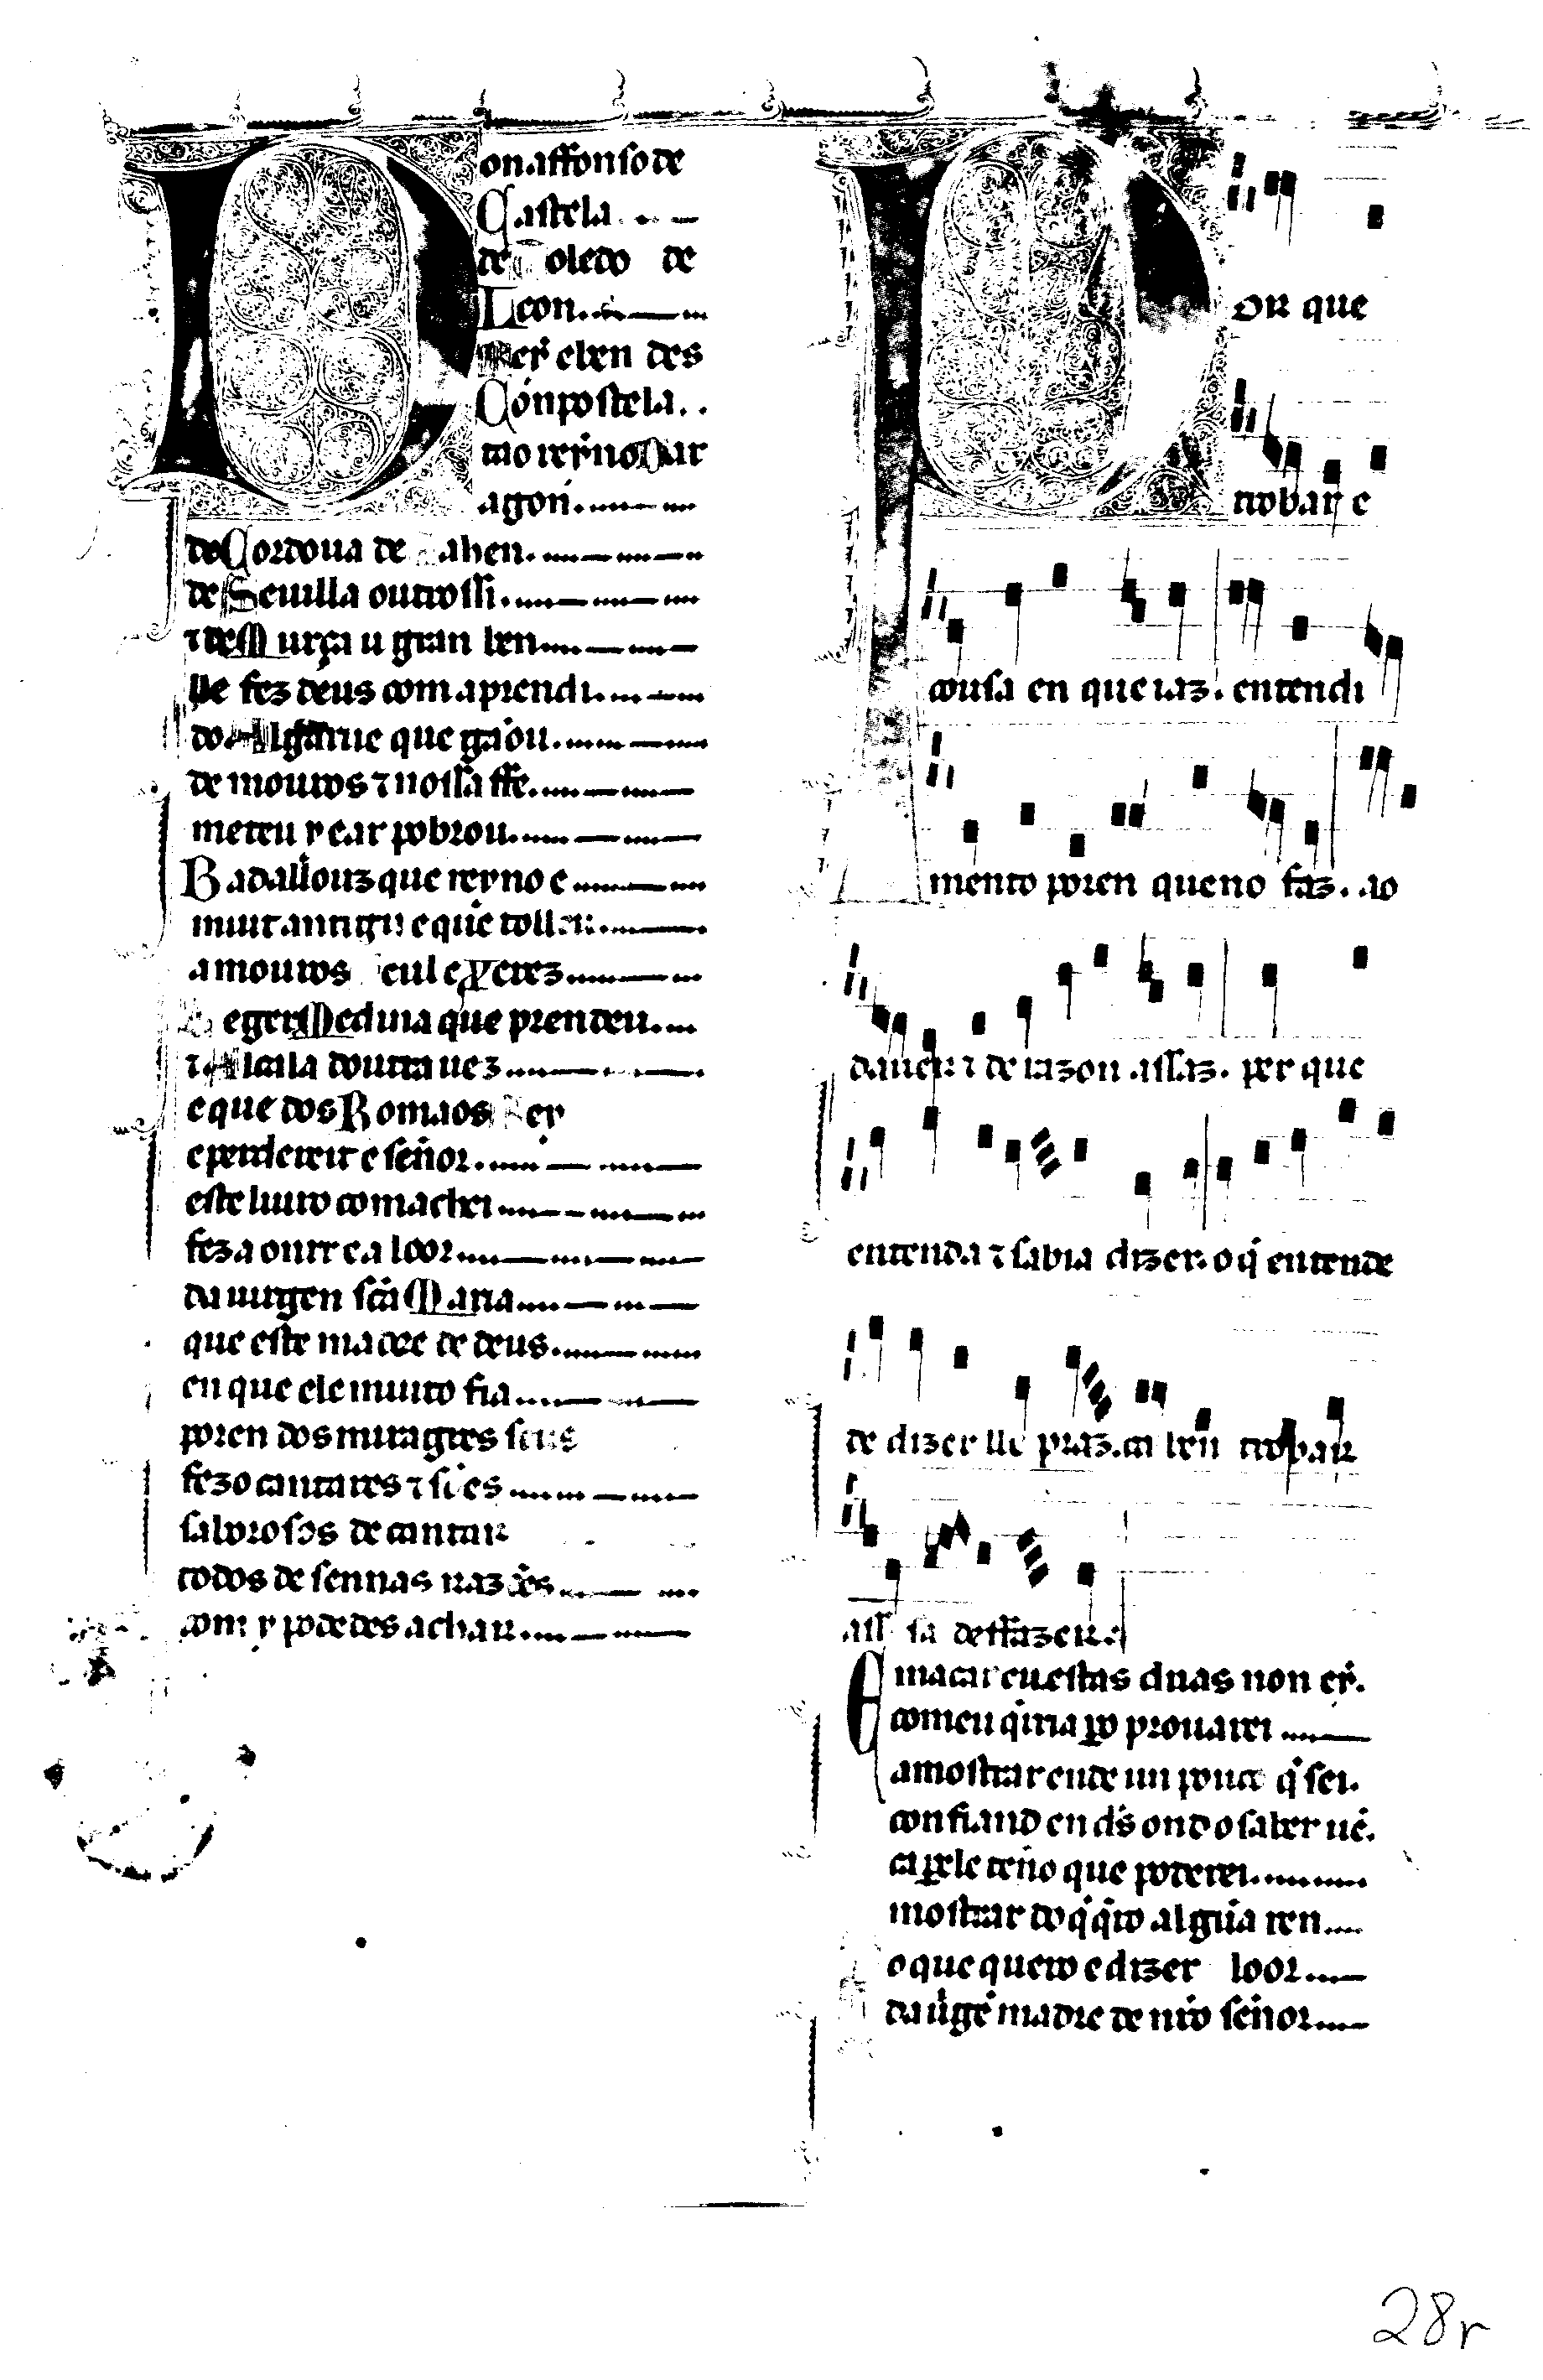 Don affonso de
Castela
de Toledo de
Leon
Rey e ben des
Conpostela
ta o reyno Dar
agon
de Cordoua de Iahen
de Seuilla outrossi
⁊ de Murça u gran ben
lle fez deus com aprendi
do Algarue que gãou
de mouros ⁊ nossa ffe
meteu y e ar pobrou
Badallouz que reyno e
muit antigu e que tolleu
a mouros Neul e Xerez
Beger Medina que prendeu
⁊ Alcala doutra uez
e que dos Romãos Rey
e per dereit e señor
este liuro com achei
fez a onrr e a loor
da uirgen scã Maria
que este madre de deus
en que ele muito fia
poren dos miragres seus
fezo cantares ⁊ sões
saborosos de cantar
todos de sennas razões
com y podedes achar
Por que
trobar e
cousa en que iaz. entendi
mento poren queno faz. ao
dauer ⁊ de razon assaz. per que
entenda ⁊ sabia dizer. o q̇ entende
de dizer lle praz. ca ben trobar
assi sa de ffazer.
E macar eu estas duas non ey.
com eu q̇ria ꝑo prouarei
a mostrar ende un pouco q̇ sei.
confiand en d̃s ond o saber uẽ.
ca ꝑ ele teño que poderei
mostrar do q̇ q̇ro algũa ren
o que quero e dizer loor
da uirgẽ madre de nr̃o señor
28r